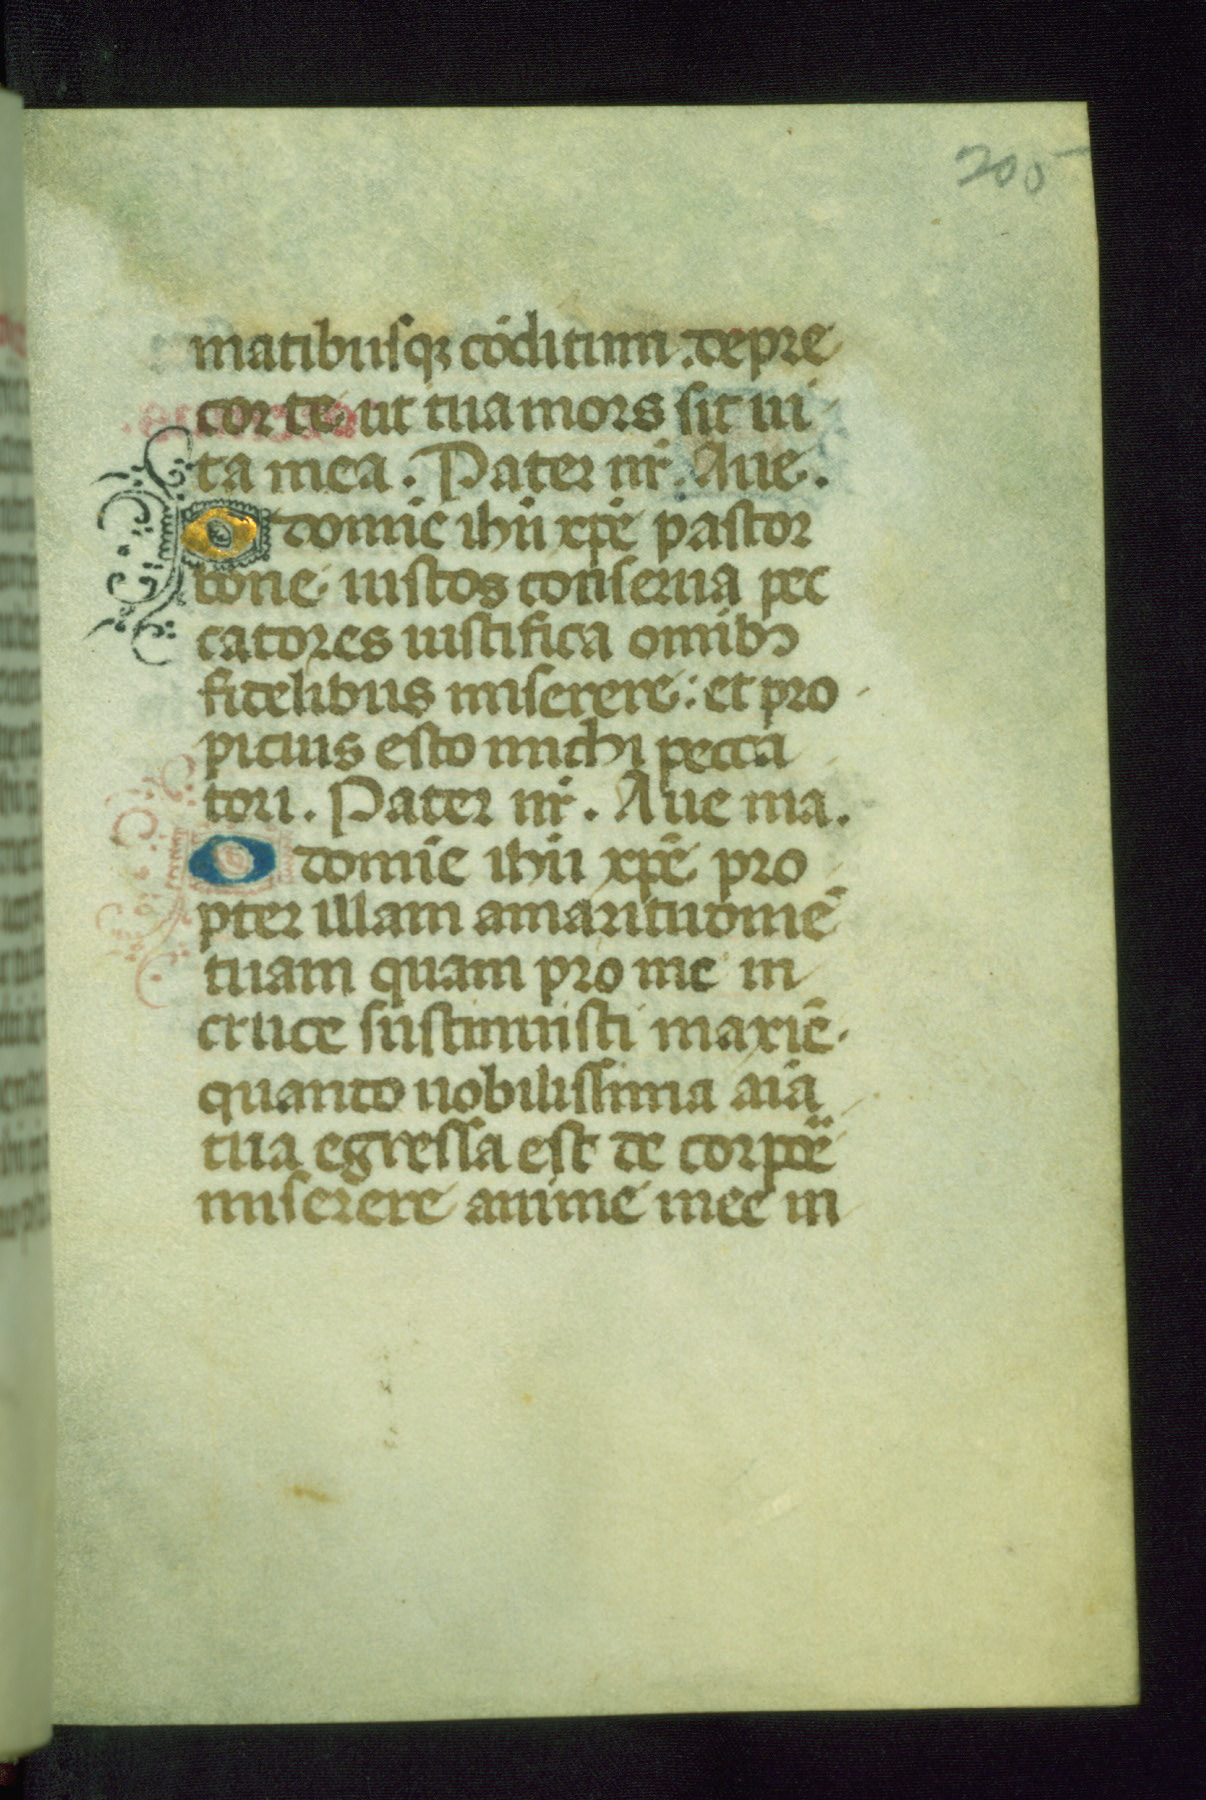 205
matibusqz cōditum . depre
cor te ut tua mors sit ui
ta mea . Pater nr̄ . Aue .
O domīe ihū xp̄e pastor
bone iustos conserua pec
catores iustifica omībꝯ
fidelibus miserere : et pro
picius esto michi pecca
tori . Pater nr̄ . Aue ma .
O domīe ihū xp̄e pro
pter illam amaritudinē
tuam quam pro me in
cruce sustinuisti maxīe
quanto nobilissima aīa
tua egressa est de corpoē
miserere anime mee in